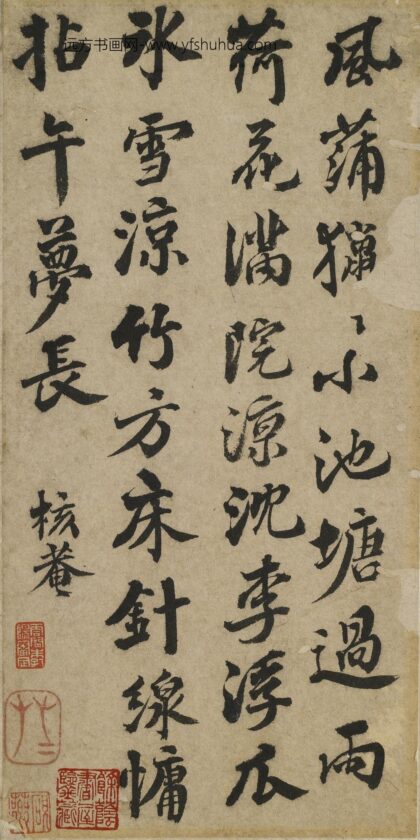 风蒲獵〻小池塘過雨
荷花滿院涼沈李浮瓜
冰雪涼竹方床針線慵
拈午夢長
核菴
远方书画网-www.yfshuhua.com